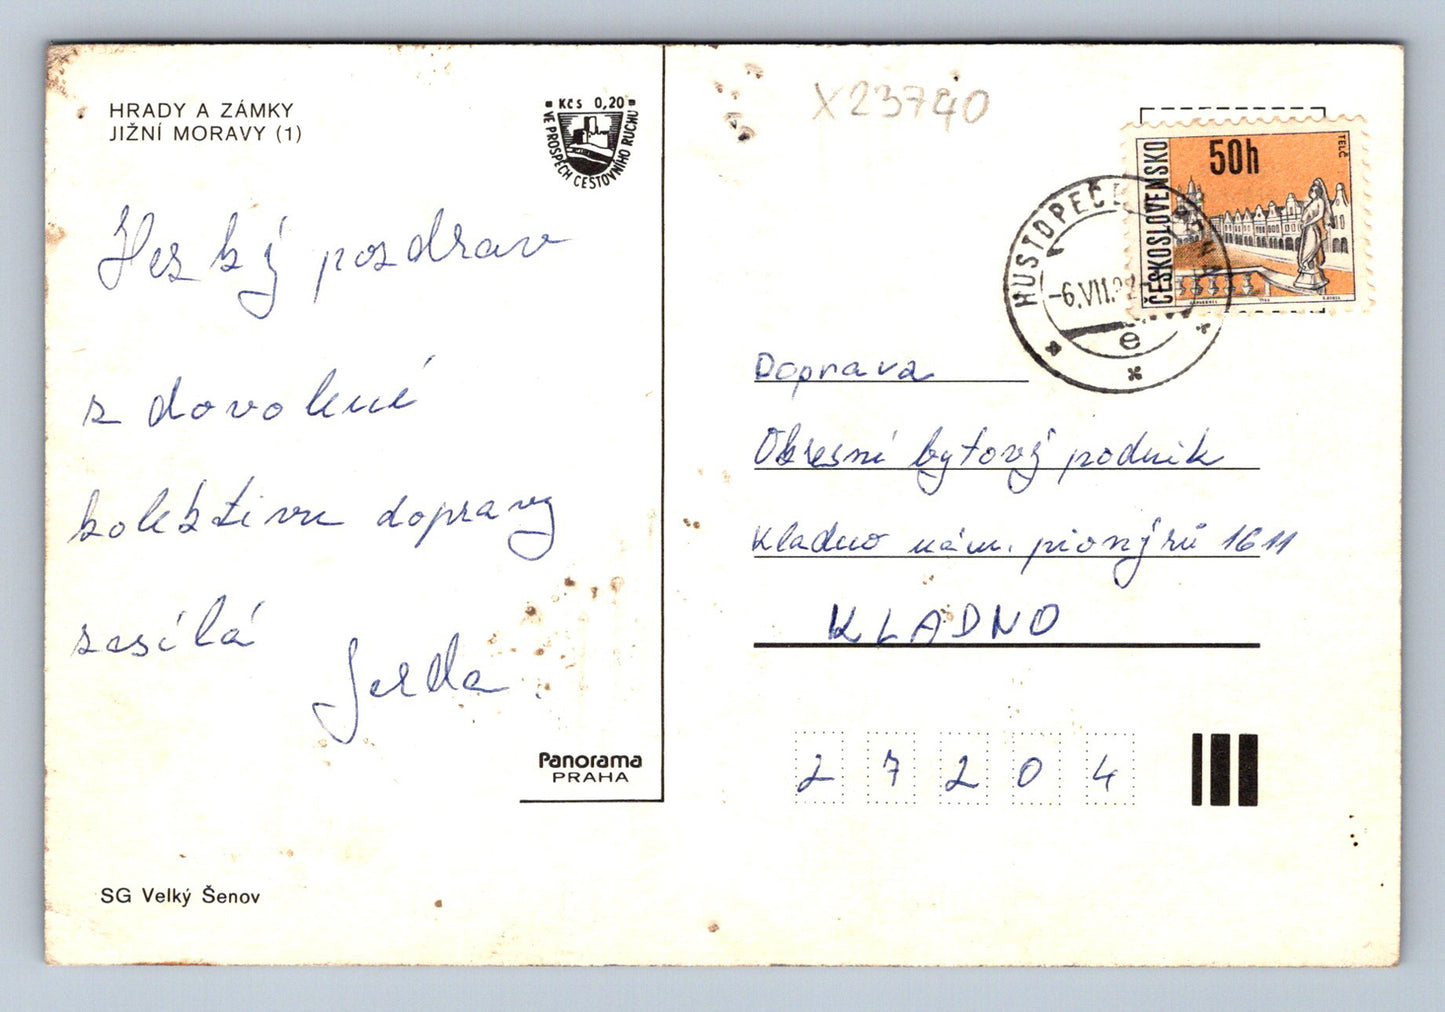 HRADY A ZÁMKY
JIŽNÍ MORAVY (1)
Kčs 0,20
VE PROSPĚCH CESTOVNÍHO RUCHU
Hezký pozdrav
z dovolené
kolektivu dopravy
zasílá
Jerda
Panorama
PRAHA
SG Velký Šenov
X23740
ČESKOSLOVENSKO
50h
TELČ
HUSTOPEČE
-6.VII.
e
Doprava
Okresní bytový podnik
Kladno nám. pionýrů 1611
KLADNO
27204